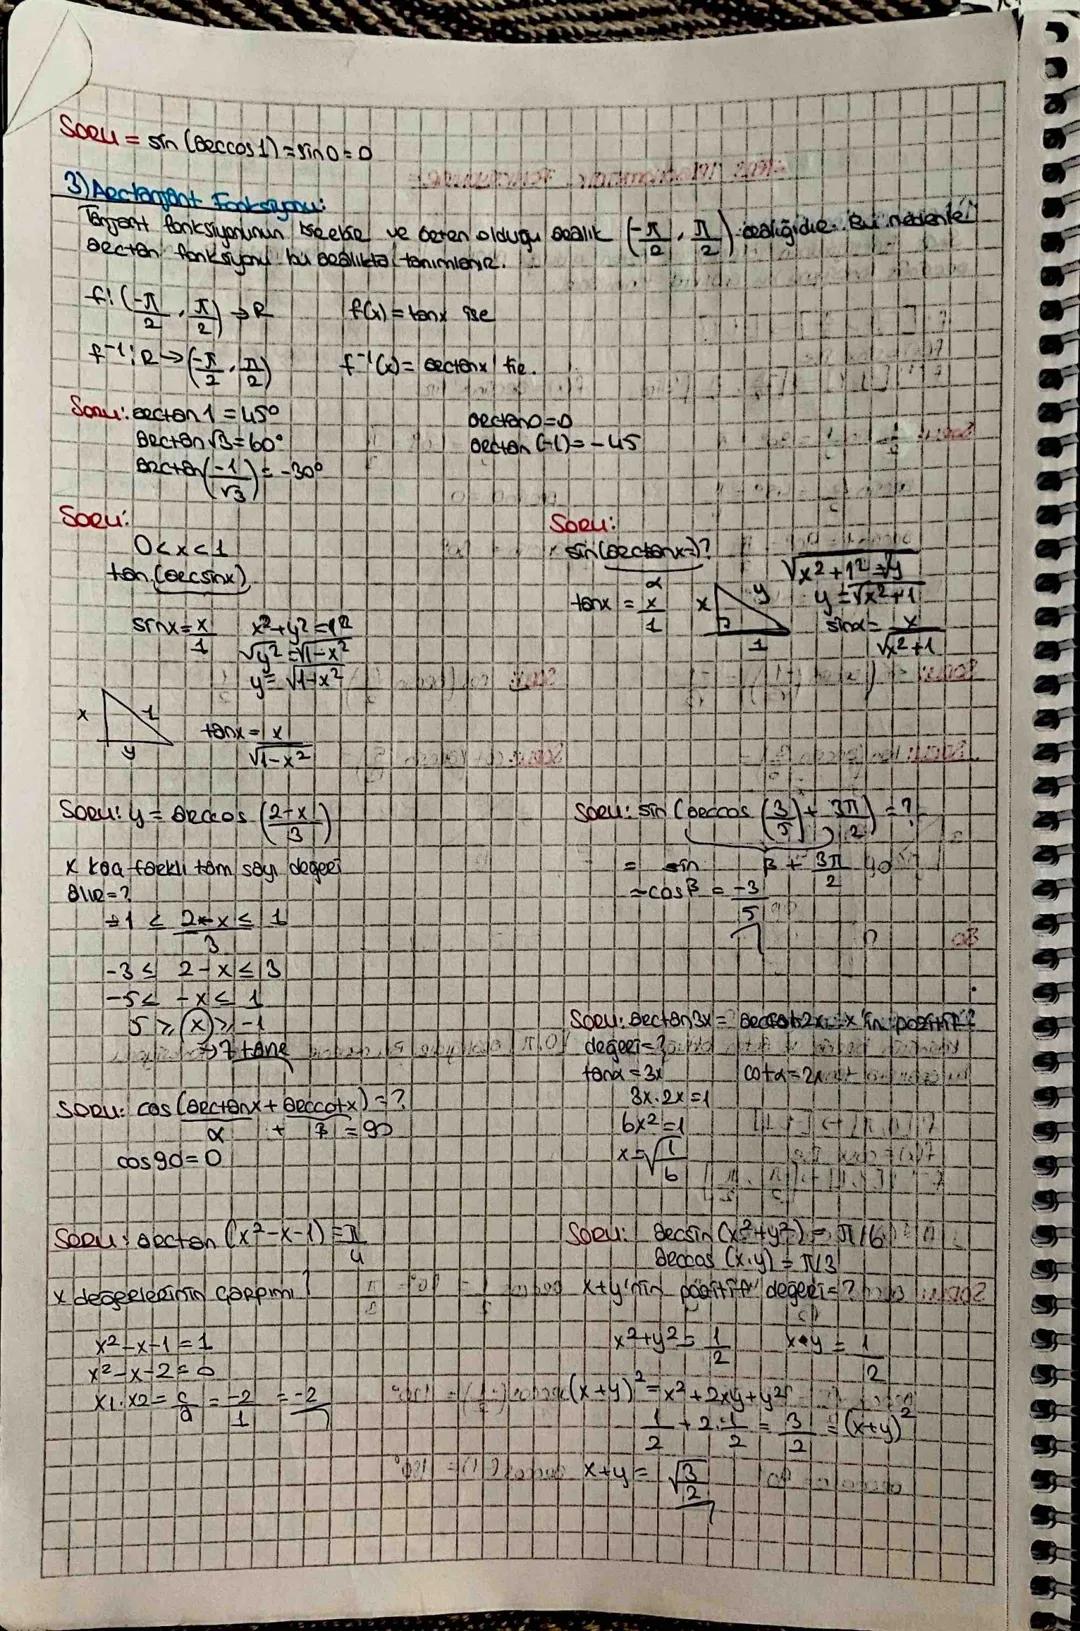 Soru = sin (arccos 1) = sin 0 = 0
3) Arctanjant Fonksiyonu:
Tanjant fonksiyonunun birebir ve örten olduğu aralık (-π/2, π/2) aralığıdır. Bu nedenle
arctan fonksiyonu bu aralıkta tanımlanır.
f: (-π/2, π/2) → R    f(x) = tanx ise
f⁻¹: R → (-π/2, π/2)    f⁻¹(x) = arctanx'tir.
Soru: arctan 1 = 45°    arctan0 = 0
arctan √3 = 60°    arctan (-1) = -45
arctan (-1/√3) = -30°
Soru:
0 < x < 1
tan (arcsinx)
sinx = x/1    x² + y² = 1²
√y² = √1-x²
y = √1-x²
x 1 y
tanx = x/√1-x²
Soru:
sin (arctanx) = ?
α
tanx = x/1
x y 1
√x²+1² = √y
y = √x²+1
sinα = x/√x²+1
Soru: y = arccos (2-x/3)
x kaç farklı tam sayı değeri
alır = ?
-1 ≤ 2-x/3 ≤ 1
-3 ≤ 2-x ≤ 3
-5 ≤ -x ≤ 1
5 ≥ x ≥ -1
⇒ 7 tane
Soru: sin (arccos (3/5) + 3π/2) = ?
= sin β + 3π/2
-cosβ = -3/5
Soru: cos (arctanx + arccotx) = ?
α + β = 90
cos 90 = 0
Soru: arctan3x = arccot2x x'in pozitif
değeri = ?
tanα = 3x    cotα = 2x
3x.2x = 1
6x² = 1
x = √1/6
Soru: arctan (x²-x-1) = π/4
x değerlerinin çarpımı?
x²-x-1 = 1
x²-x-2 = 0
x1.x2 = c/a = -2/1 = -2
Soru: arcsin (x²+y²) = π/6
arccos (x.y) = π/3
x+y'nin pozitif değeri = ?
x²+y² = 1/2    x.y = 1/2
(x+y)² = x² + 2xy + y²
1/2 + 2.1/2 = 3/2 = (x+y)²
x+y = √3/2